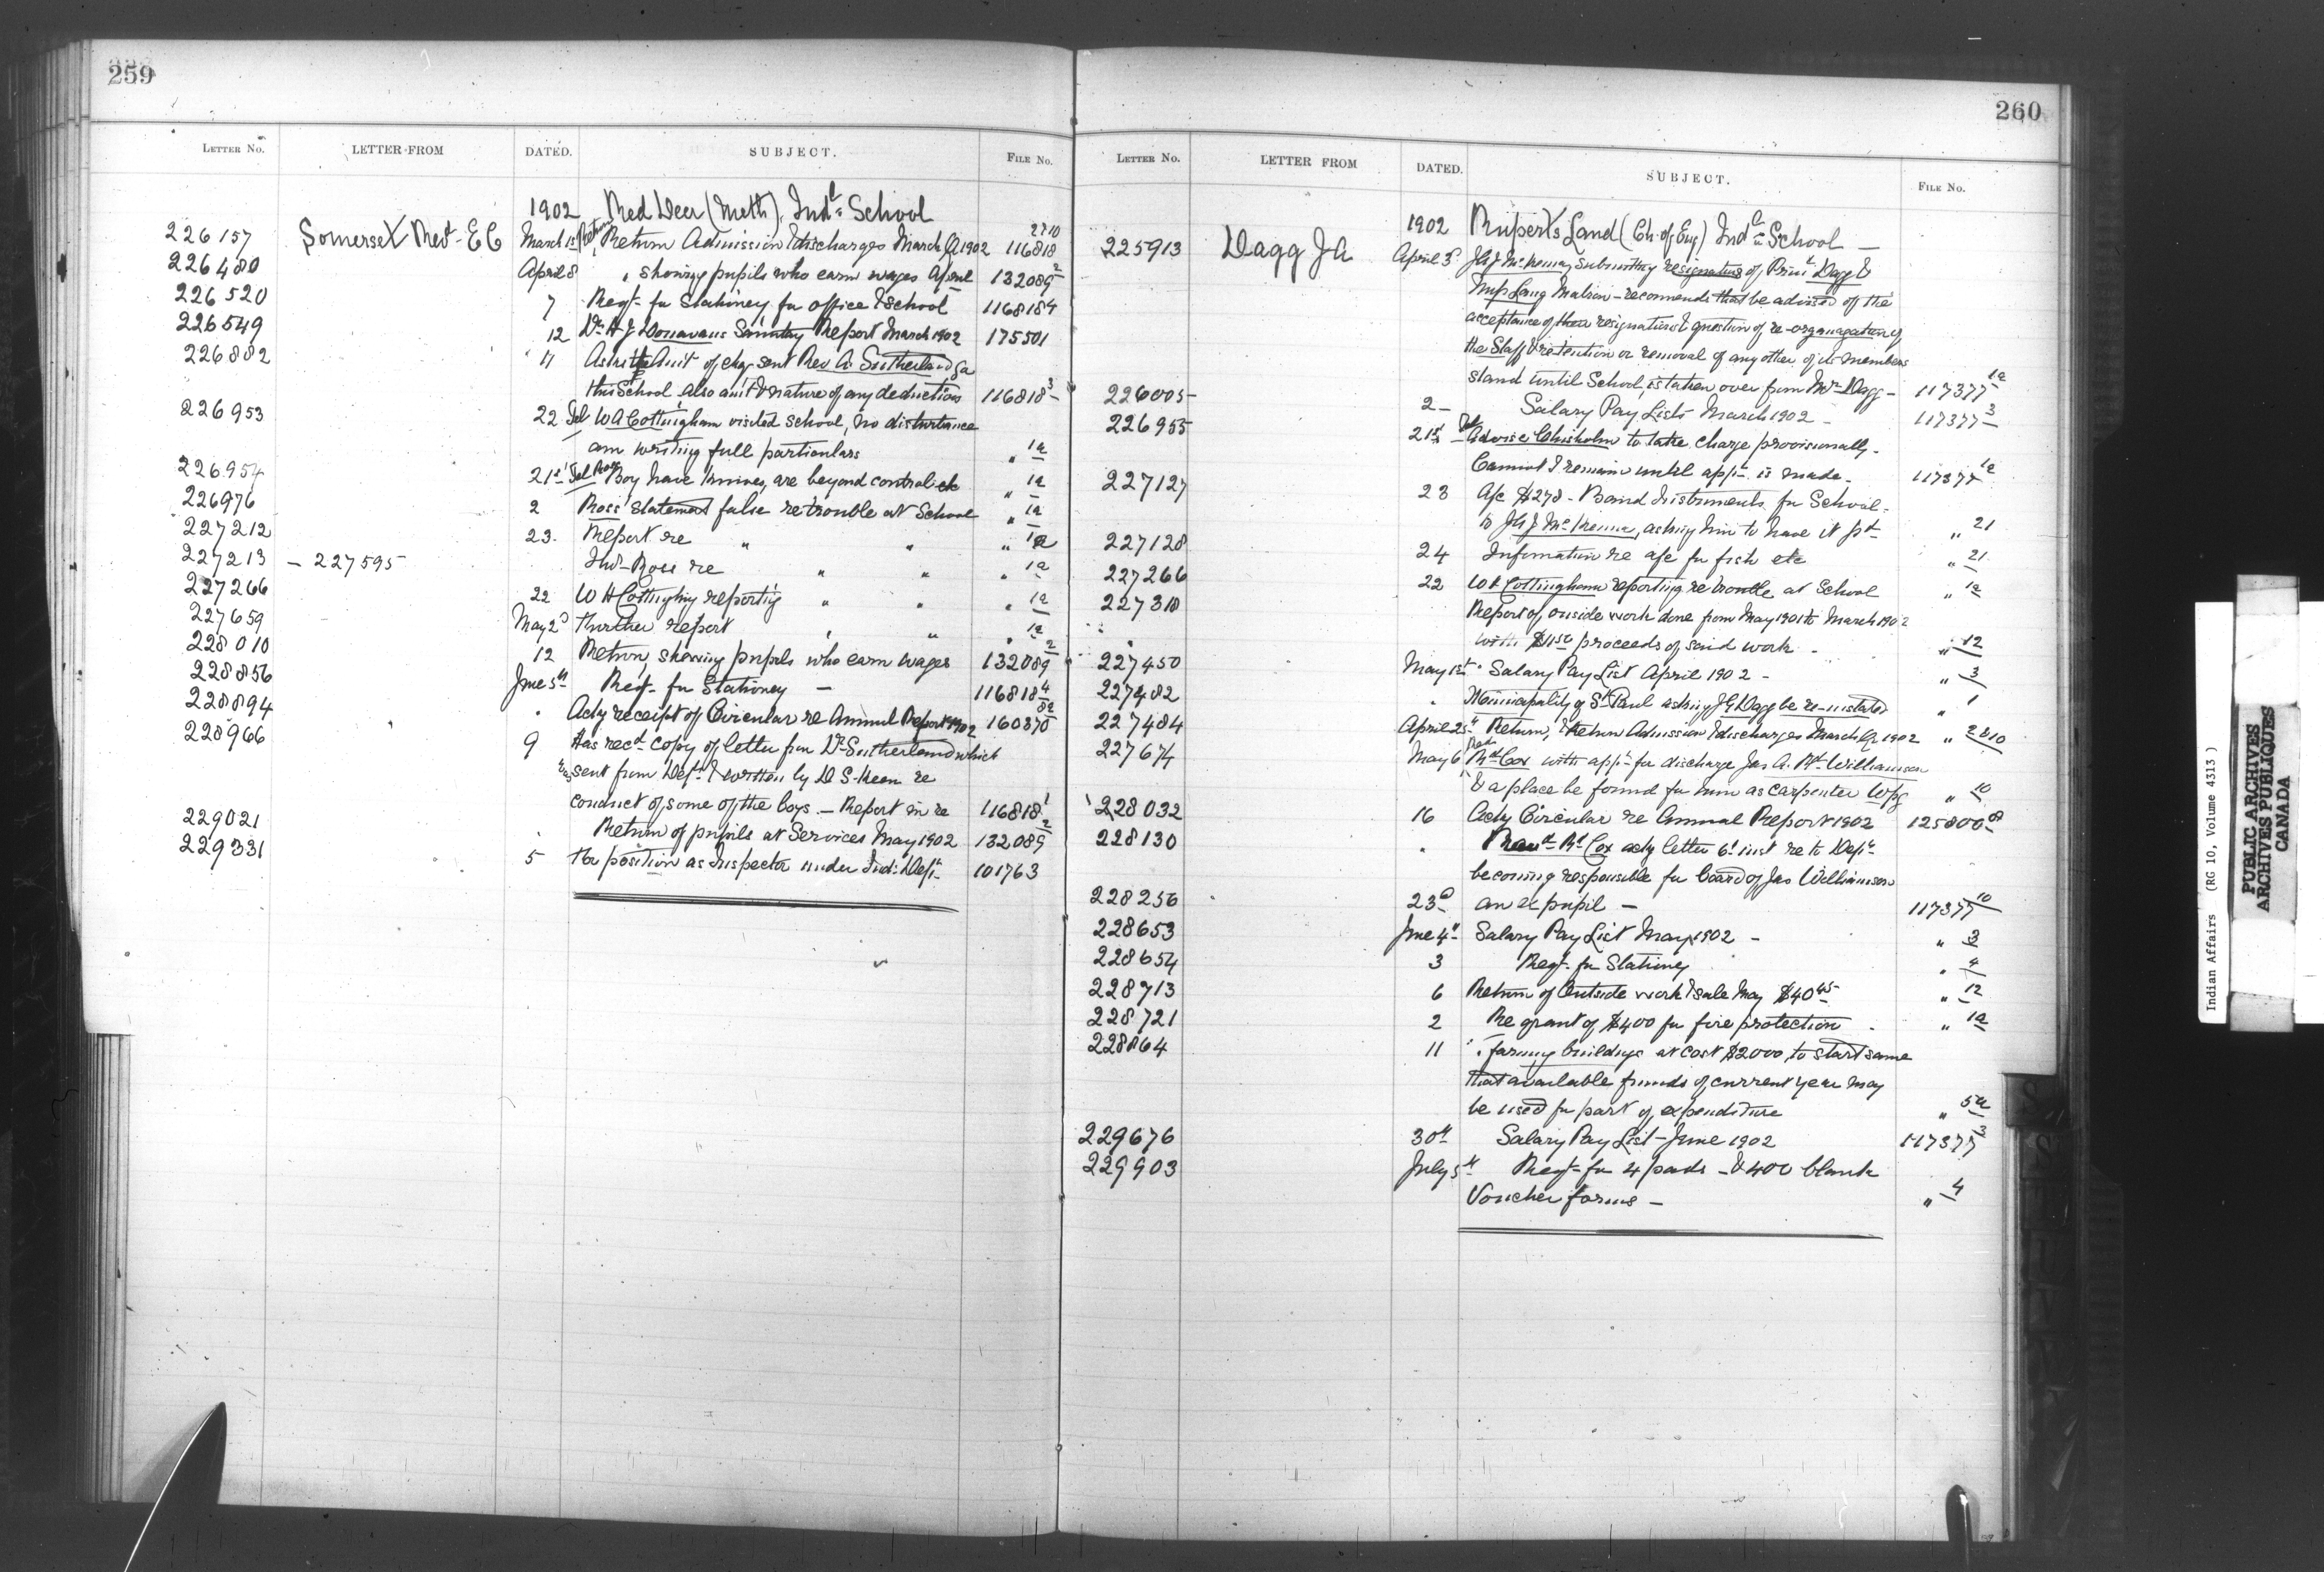 259
LETTER No. LETTER FROM DATED. SUBJECT. FILE No.
1902 Red Deer (Meth) Indl School
226157 Somerset Revd E C March 1st Return Admission & discharges March Q 1902 116818 2810
226480 April 8 " showing pupils who earn wages April 132089 2
226520 7 Reqt for Stationery for office & School 116818 4
226549 12 Dr H J Donavans Sanitary Report March 1902 175501
226882 17 Asks Amt of chq sent Rev A. Sutherland for
this School, also amt & nature of any deductions 116818 3
226953 22 Tel W A Cottingham visited school, no disturbance
am writing full particulars " 1a
226954 21st Tel Boy have knives, are beyond control etc " 1a
226976 2 Ross' statement false re trouble at School " 1a
227212 23. Report re " " " 1a
227213 - 227595 Ind- Ross re " " " 1a
227266 22 W H Cottingham reporting " " " 1a
227659 May 2d Further report " " " 1a
228010 12 Return showing pupils who earn wages 132089 2
228856 June 5th Reqt for Stationery — 116818 4
228894 " Ackg receipt of Circular re Annual Report 1902 160370 8a
228966 9 Has recd copy of letter from Dr Sutherland which
was sent from Dept & written by D S. Keen re
conduct of some of the boys. — Report on re 116818 1
229021 " Return of pupils at Services May 1902 132089 2
229331 5 For position as Inspector under Ind. Dept 101763
260
LETTER No. LETTER FROM DATED. SUBJECT. FILE No.
1902 Ruperts Land (Ch. of Eng) Indl School —
225913 Dagg J A April 3d J A J McKenna submitting resignations of Prinl Dagg &
Miss Lang Matron - recommends that be advised of the
acceptance of their resignations & question of re-organization of
the Staff & retention or removal of any other of its members
stand until School is taken over from Mr Dagg - 117377 1a
226005 2 - Salary Pay Lists March 1902 - 117377 3
226955 21st Tel Advise Chisholm to take charge provisionally.
Cannot I remain until appt is made. 117377 1a
227127 23 A/c $278 - Band Instruments for School.
to J A J McKenna, asking him to have it pd " 21
227128 24 Information re a/c for fish etc " 21
227266 22 W H Cottingham reporting re trouble at School " 1a
227318 Report of outside work done from May 1901 to March 1902
with proceeds of said work - " 12
227450 May 1st Salary Pay List April 1902 - " 3
227482 " Municipality of St Paul asking J G Dagg be re-instated " 1
227484 April 25th Return, Admission & discharges March Q 1902 " 2810
227674 May 6 Rt Cox with appn for discharge Jas A. Rt Williamson
& a place be found for him as carpenter Wpg " 10
228032 16 Ackg Circular re Annual Report 1902 125800 8
228130 " Rt Cox ackg letter 6th inst re to Dept
becoming responsible for board of Jas Williamson
228256 23d an ex pupil — 117377 10
228653 June 4th Salary Pay List May 1902 - " 3
228654 3 Reqt for Stationery " 4
228713 6 Return of Outside work & sale May $40 45 " 12
228721 2 Re grant of $400 for fire protection " 1a
228864 11 " farming buildings at cost $2000, to start same
that available funds of current year may
be used for part of expenditure " 5a
229676 30th Salary Pay List - June 1902 117377 3
229903 July 5th Reqt for 4 pads - & 400 blank
Voucher forms — " 4
Indian Affairs (RG 10, Volume 4313)
PUBLIC ARCHIVES
ARCHIVES PUBLIQUES
CANADA